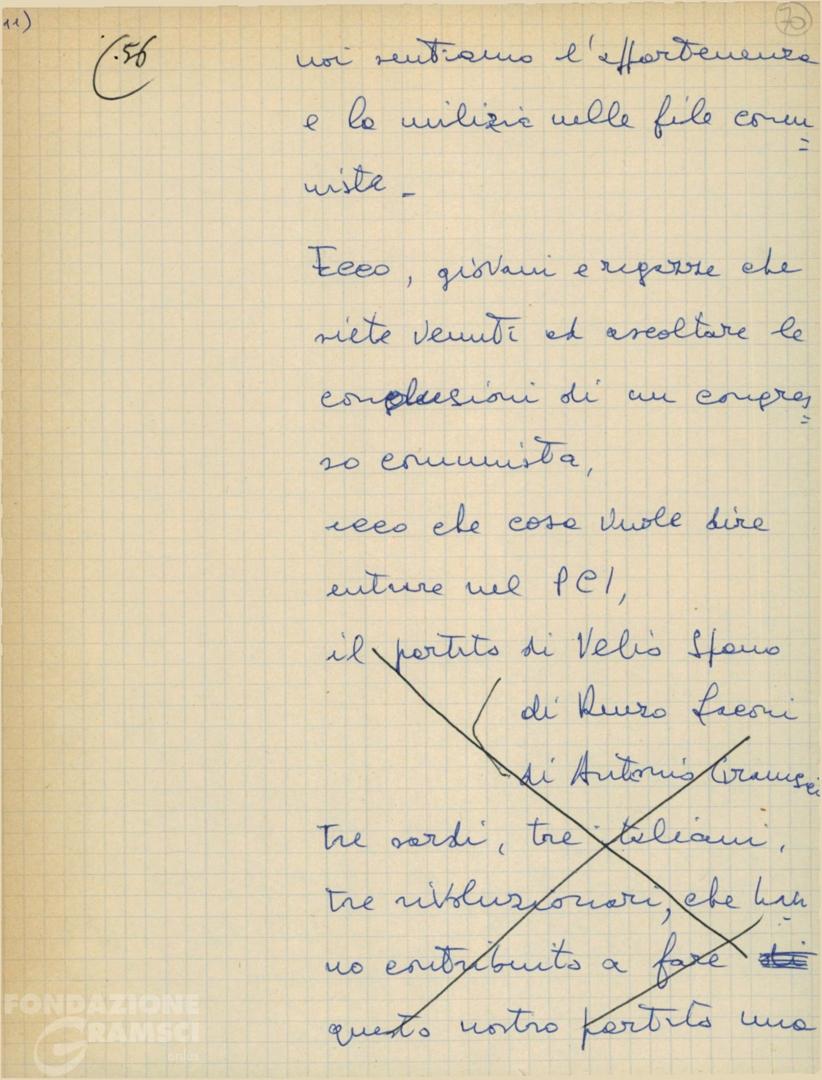 11)
70
.56
noi sentiamo l'appartenenza
e la milizia nelle file comu=
niste -
Ecco, giovani e ragazze che
siete venuti ad ascoltare le
conclusioni di un congres=
so comunista,
ecco che cosa vuole dire
entrare nel PCI,
il partito di Velio Spano
di Renzo Laconi
di Antonio Gramsci
Tre sardi, tre italiani,
tre rivoluzionari, che han=
no contribuito a fare di
questo nostro partito una
FONDAZIONE
GRAMSCI
onlus